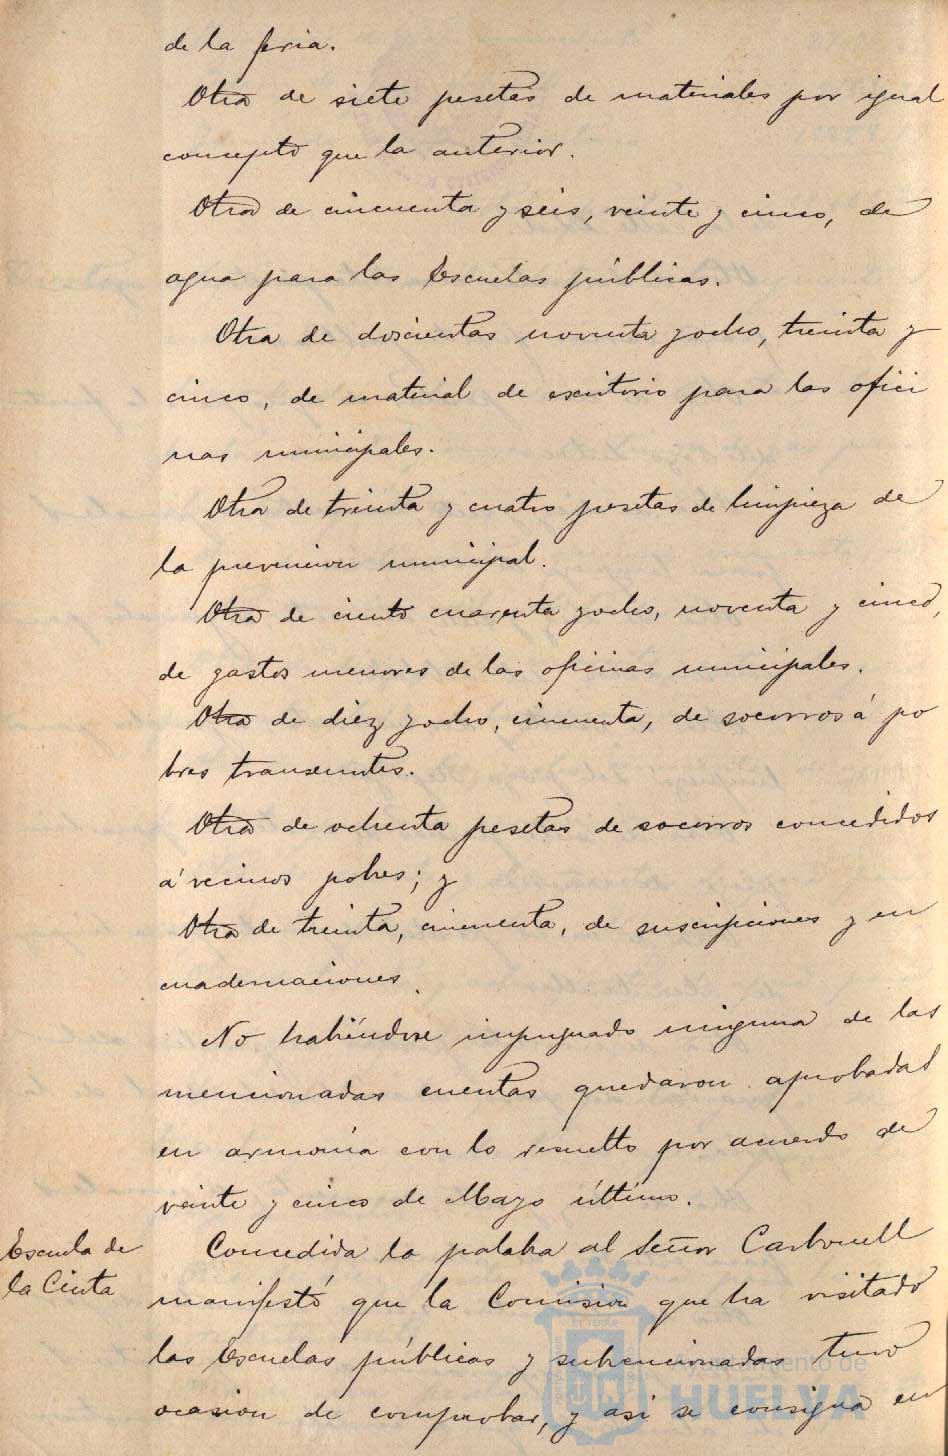 de la feria.
Otra de siete pesetas de materiales por igual
concepto que la anterior.
Otra de cincuenta y seis, veinte y cinco, de
agua para las Escuelas públicas.
Otra de doscientas noventa y ocho, treinta y
cinco, de material de escritorio para las ofici
nas municipales.
Otra de treinta y cuatro pesetas de limpieza de
la prevencion municipal.
Otra de ciento cuarenta y ocho, noventa y cinco,
de gastos menores de las oficinas municipales.
Otra de diez y ocho, cincuenta, de socorros á po
bres transeuntes.
Otra de ochenta pesetas de socorros concedidos
á vecinos pobres; y
Otra de treinta, cincuenta, de suscripciones y en
cuadernaciones.
No habiéndose impugnado ninguna de las
mencionadas cuentas quedaron aprobadas
en armonía con lo resuelto por acuerdo de
veinte y cinco de Mayo último.
Escuela de
la Cinta
Concedida la palabra al Señor Carbonell
manifestó que la Comision que ha visitado
las Escuelas públicas y subvencionadas tuvo
ocasion de comprobar, y asi se consigna en
Ayuntamiento de
HUELVA